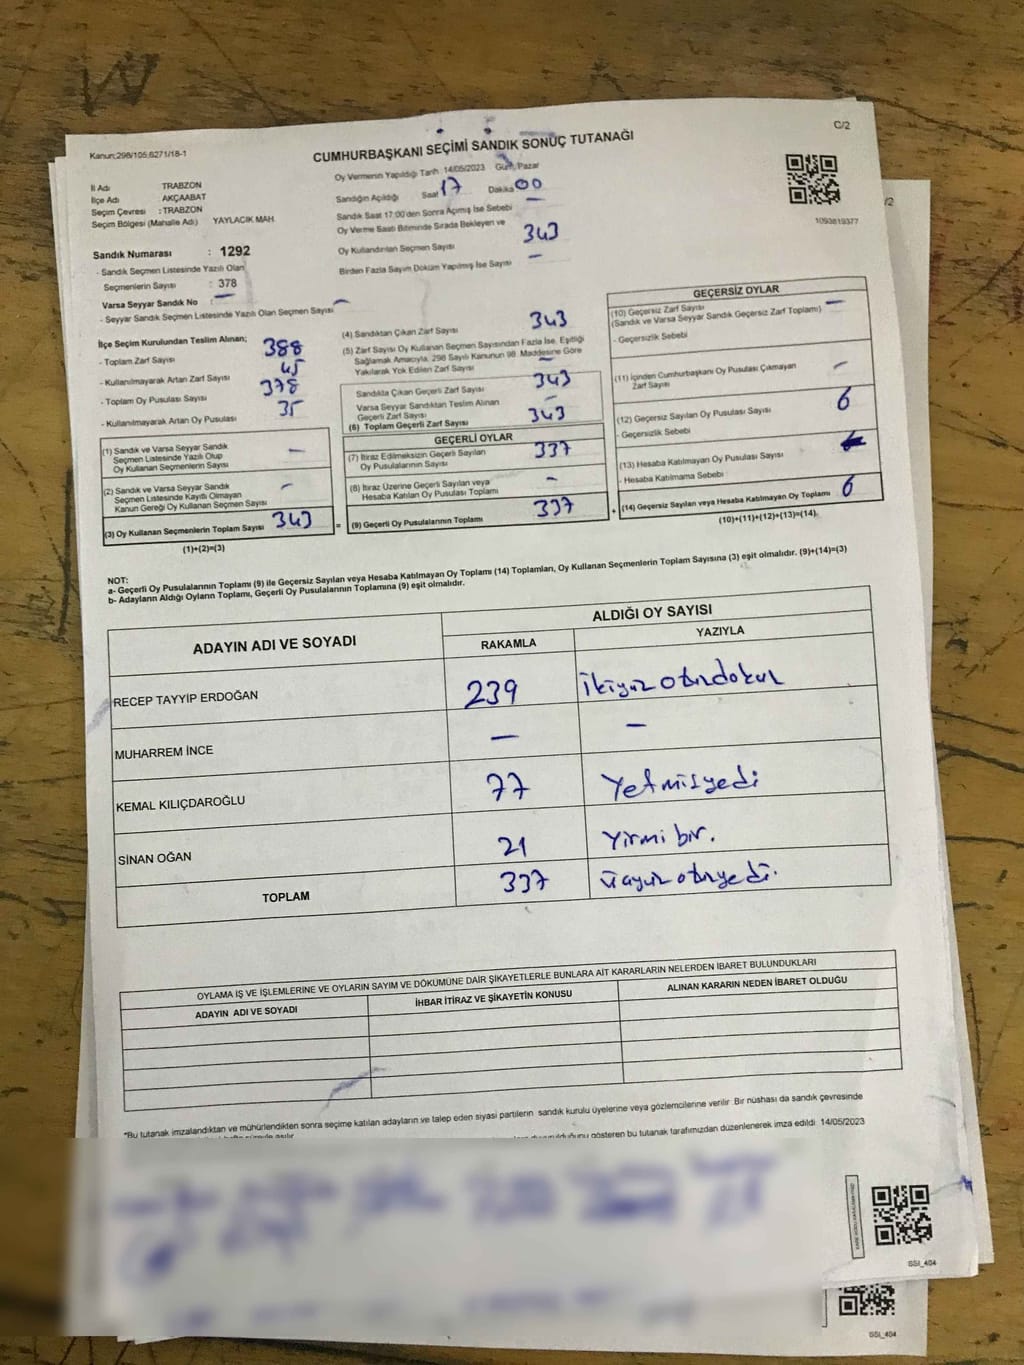 C/2
Kanun;298/105,6271/18-1
CUMHURBAŞKANI SEÇİMİ SANDIK SONUÇ TUTANAĞI
İl Adı TRABZON
İlçe Adı AKÇAABAT
Seçim Çevresi : TRABZON
Seçim Bölgesi (Mahalle Adı) YAYLACIK MAH.
Oy Vermenin Yapıldığı Tarih 14/05/2023 Gün; Pazar
Sandığın Açıldığı Saat 17 Dakika 00
Sandık Saat 17:00'den Sonra Açımış İse Sebebi —
Oy Verme Saati Bitiminde Sırada Bekleyen ve
Oy Kullandırılan Seçmen Sayısı 343
Birden Fazla Sayım Döküm Yapılmış İse Sayısı —
1093819377
Sandık Numarası : 1292
- Sandık Seçmen Listesinde Yazılı Olan
Seçmenlerin Sayısı : 378
Varsa Seyyar Sandık No : —
- Seyyar Sandık Seçmen Listesinde Yazılı Olan Seçmen Sayısı —
İlçe Seçim Kurulundan Teslim Alınan;
- Toplam Zarf Sayısı 388
- Kullanılmayarak Artan Zarf Sayısı 45
- Toplam Oy Pusulası Sayısı 378
- Kullanılmayarak Artan Oy Pusulası 35
(1) Sandık ve Varsa Seyyar Sandık
Seçmen Listesinde Yazılı Olup
Oy Kullanan Seçmenlerin Sayısı —
(2) Sandık ve Varsa Seyyar Sandık
Seçmen Listesinde Kayıtlı Olmayan
Kanun Gereği Oy Kullanan Seçmen Sayısı —
(3) Oy Kullanan Seçmenlerin Toplam Sayısı 343 =
(1)+(2)=(3)
(4) Sandıktan Çıkan Zarf Sayısı 343
(5) Zarf Sayısı Oy Kullanan Seçmen Sayısından Fazla İse, Eşitliği
Sağlamak Amacıyla, 298 Sayılı Kanunun 98. Maddesine Göre
Yakılarak Yok Edilen Zarf Sayısı —
Sandıkta Çıkan Geçerli Zarf Sayısı 343
Varsa Seyyar Sandıktan Teslim Alınan
Geçerli Zarf Sayısı —
(6) Toplam Geçerli Zarf Sayısı 343
GEÇERLİ OYLAR
(7) İtiraz Edilmeksizin Geçerli Sayılan
Oy Pusulalarının Sayısı 337
(8) İtiraz Üzerine Geçerli Sayılan veya
Hesaba Katılan Oy Pusulası Toplamı —
(9) Geçerli Oy Pusulalarının Toplamı 337 +
GEÇERSİZ OYLAR
(10) Geçersiz Zarf Sayısı —
(Sandık ve Varsa Seyyar Sandık Geçersiz Zarf Toplamı)
- Geçersizlik Sebebi
(11) İçinden Cumhurbaşkanı Oy Pusulası Çıkmayan
Zarf Sayısı —
(12) Geçersiz Sayılan Oy Pusulası Sayısı 6
- Geçersizlik Sebebi
(13) Hesaba Katılmayan Oy Pusulası Sayısı
- Hesaba Katılmama Sebebi
(14) Geçersiz Sayılan veya Hesaba Katılmayan Oy Toplamı 6
(10)+(11)+(12)+(13)=(14)
NOT:
a- Geçerli Oy Pusulalarının Toplamı (9) ile Geçersiz Sayılan veya Hesaba Katılmayan Oy Toplamı (14) Toplamları, Oy Kullanan Seçmenlerin Toplam Sayısına (3) eşit olmalıdır. (9)+(14)=(3)
b- Adayların Aldığı Oyların Toplamı, Geçerli Oy Pusulalarının Toplamına (9) eşit olmalıdır.
ADAYIN ADI VE SOYADI ALDIĞI OY SAYISI
RAKAMLA YAZIYLA
RECEP TAYYİP ERDOĞAN 239 ikiyüz otuzdokuz
MUHARREM İNCE — —
KEMAL KILIÇDAROĞLU 77 Yetmişyedi
SİNAN OĞAN 21 Yirmi bir.
TOPLAM 337 üçyüz otuzyedi.
OYLAMA İŞ VE İŞLEMLERİNE VE OYLARIN SAYIM VE DÖKÜMÜNE DAİR ŞİKAYETLERLE BUNLARA AİT KARARLARIN NELERDEN İBARET BULUNDUKLARI
ADAYIN ADI VE SOYADI İHBAR İTİRAZ VE ŞİKAYETİN KONUSU ALINAN KARARIN NEDEN İBARET OLDUĞU
*Bu tutanak imzalandıktan ve mühürlendikten sonra seçime katılan adayların ve talep eden siyasi partilerin sandık kurulu üyelerine veya gözlemcilerine verilir. Bir nüshası da sandık çevresinde
duyurulduğunu gösteren bu tutanak tarafımızdan düzenlenerek imza edildi. 14/05/2023
SSI_404
/2
SSI_404